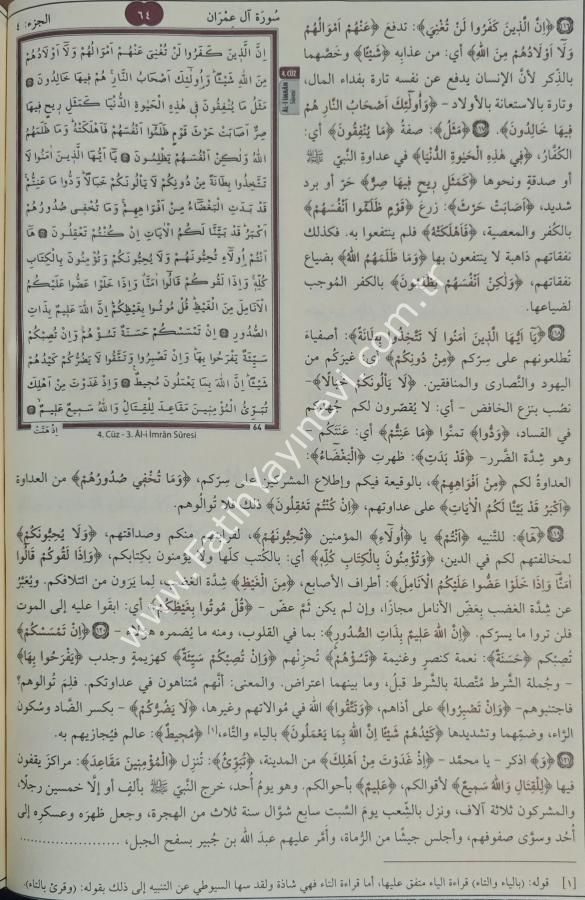 سُورَةُ آلِ عِمْرَان
٦٤
الجزء: ٤
إِنَّ الَّذ۪ينَ كَفَرُوا لَنْ تُغْنِيَ عَنْهُمْ اَمْوَالُهُمْ وَلَٓا اَوْلَادُهُمْ
مِنَ اللّٰهِ شَيْـًٔاۜ وَاُو۬لٰٓئِكَ اَصْحَابُ النَّارِۚ هُمْ ف۪يهَا خَالِدُونَ
مَثَلُ مَا يُنْفِقُونَ ف۪ي هٰذِهِ الْحَيٰوةِ الدُّنْيَا كَمَثَلِ ر۪يحٍ ف۪يهَا
صِرٌّ اَصَابَتْ حَرْثَ قَوْمٍ ظَلَمُٓوا اَنْفُسَهُمْ فَاَهْلَكَتْهُۜ وَمَا ظَلَمَهُمُ
اللّٰهُ وَلٰكِنْ اَنْفُسَهُمْ يَظْلِمُونَ يَٓا اَيُّهَا الَّذ۪ينَ اٰمَنُوا لَا
تَتَّخِذُوا بِطَانَةً مِنْ دُونِكُمْ لَا يَأْلُونَكُمْ خَبَالًاۜ وَدُّوا مَا عَنِتُّمْۚ
قَدْ بَدَتِ الْبَغْضَٓاءُ مِنْ اَفْوَاهِهِمْۚ وَمَا تُخْف۪ي صُدُورُهُمْ
اَكْبَرُۜ قَدْ بَيَّنَّا لَكُمُ الْاٰيَاتِ اِنْ كُنْتُمْ تَعْقِلُونَ هَٓا
اَنْتُمْ اُو۬لَٓاءِ تُحِبُّونَهُمْ وَلَا يُحِبُّونَكُمْ وَتُؤْمِنُونَ بِالْكِتَابِ
كُلِّه۪ۚ وَاِذَا لَقُوكُمْ قَالُٓوا اٰمَنَّاۗ وَاِذَا خَلَوْا عَضُّوا عَلَيْكُمُ
الْاَنَامِلَ مِنَ الْغَيْظِۜ قُلْ مُوتُوا بِغَيْظِكُمْۜ اِنَّ اللّٰهَ عَل۪يمٌ بِذَاتِ
الصُّدُورِ اِنْ تَمْسَسْكُمْ حَسَنَةٌ تَسُؤْهُمْۘ وَاِنْ تُصِبْكُمْ
سَيِّئَةٌ يَفْرَحُوا بِهَاۜ وَاِنْ تَصْبِرُوا وَتَتَّقُوا لَا يَضُرُّكُمْ كَيْدُهُمْ
شَيْـًٔاۜ اِنَّ اللّٰهَ بِمَا يَعْمَلُونَ مُح۪يطٌ وَاِذْ غَدَوْتَ مِنْ اَهْلِكَ
تُبَوِّئُ الْمُؤْمِن۪ينَ مَقَاعِدَ لِلْقِتَالِۜ وَاللّٰهُ سَم۪يعٌ عَل۪يمٌ
إِذْ هَمَّتْ
64
4. Cüz - 3. Âl-i İmrân Sûresi
4. CÜZ
ÂL-İ İMRÂN
Sûresi
﴿إِنَّ الَّذِينَ كَفَرُوا لَنْ تُغْنِيَ﴾: تدفع ﴿عَنْهُمْ أَمْوَالُهُمْ
وَلَا أَوْلَادُهُمْ مِنَ اللهِ﴾ أي: من عذابِه ﴿شَيْئًا﴾ وخَصَّهما
بالذِكر لأنّ الإنسان يدفع عن نفسه تارة بفداء المال،
وتارة بالاستعانة بالأولاد - ﴿وَأُولَئِكَ أَصْحَابُ النَّارِ هُمْ
فِيهَا خَالِدُونَ﴾. ﴿مَثَلُ﴾: صفةُ ﴿مَا يُنْفِقُونَ﴾ أي:
الكفّارُ، ﴿فِي هَذِهِ الْحَيَوةِ الدُّنْيَا﴾ في عداوة النبيّ ﷺ
أو صدقةٍ ونحوها ﴿كَمَثَلِ رِيحٍ فِيهَا صِرٌّ﴾ حَرٌّ أو برد
شديد، ﴿أَصَابَتْ حَرْثَ﴾: زرعَ ﴿قَوْمٍ ظَلَمُوا أَنْفُسَهُمْ﴾
بالكُفر والمعصية، ﴿فَأَهْلَكَتْهُ﴾ فلم ينتفعوا به. فكذلك
نفقاتهم ذاهبة لا ينتفعون بها ﴿وَمَا ظَلَمَهُمُ اللهُ﴾ بضياع
نفقاتهم، ﴿وَلَكِنْ أَنْفُسَهُمْ يَظْلِمُونَ﴾ بالكفر المُوجب
لضياعها.
﴿يَا أَيُّهَا الَّذِينَ آمَنُوا لَا تَتَّخِذُوا بِطَانَةً﴾: أصفياءَ
تُطلعونهم على سِرّكم ﴿مِنْ دُونِكُمْ﴾ أي: غيرَكم من
اليهود والنَّصارى والمنافقين. ﴿لَا يَأْلُونَكُمْ خَبَالًا﴾-
نصب بنزع الخافض - أي: لا يُقصرون لكم جَهدَكم
في الفساد، ﴿وَدُّوا﴾ تمنّوا ﴿مَا عَنِتُّمْ﴾ أي: عَنَتَكم -
وهو شِدّة الضرر- ﴿قَدْ بَدَتِ﴾: ظهرتِ ﴿الْبَغْضَاءُ﴾:
العداوةُ لكم ﴿مِنْ أَفْوَاهِهِمْ﴾، بالوقيعة فيكم وإطلاع المشركين على سِركم، ﴿وَمَا تُخْفِي صُدُورُهُمْ﴾ من العداوة
﴿أَكْبَرُ قَدْ بَيَّنَّا لَكُمُ الْآيَاتِ﴾ على عداوتهم، ﴿إِنْ كُنْتُمْ تَعْقِلُونَ﴾ ذلك فلا تُوالُوهم.
﴿هَا﴾: للتَّنبيه ﴿أَنْتُمْ﴾ يا ﴿أُولَاءِ﴾ المؤمنين ﴿تُحِبُّونَهُمْ﴾، لقرابتهم منكم وصداقتهم، ﴿وَلَا يُحِبُّونَكُمْ﴾
لمخالفتهم لكم في الدين، ﴿وَتُؤْمِنُونَ بِالْكِتَابِ كُلِّهِ﴾ أي: بالكُتب كلّها ولا يؤمنون بكِتابكم، ﴿وَإِذَا لَقُوكُمْ قَالُوا
آمَنَّا وَإِذَا خَلَوْا عَضُّوا عَلَيْكُمُ الْأَنَامِلَ﴾: أطراف الأصابع، ﴿مِنَ الْغَيْظِ﴾ شِدّة الغضب، لِما يَرَون من ائتلافكم. ويُعَبَّرُ
عن شِدّة الغضب بِعَضّ الأنامل مجازًا، وإن لم يكن ثَمّ عَضّ - ﴿قُلْ مُوتُوا بِغَيْظِكُمْ﴾ أي: ابقوا عليه إلى الموت
فلن تروا ما يسرّكم. ﴿إِنَّ اللهَ عَلِيمٌ بِذَاتِ الصُّدُورِ﴾: بما في القلوب، ومنه ما يُضمره هؤلاء - ﴿إِنْ تَمْسَسْكُمْ﴾
تُصِبكم ﴿حَسَنَةٌ﴾: نعمة كنصرٍ وغنيمة ﴿تَسُؤْهُمْ﴾: تُحزِنْهم ﴿وَإِنْ تُصِبْكُمْ سَيِّئَةٌ﴾ كهزيمةٍ وجدب ﴿يَفْرَحُوا بِهَا﴾
- وجُملة الشَّرط مُتّصلة بالشَّرط قبلُ، وما بينهما اعتراض. والمعنى: أنّهم مُتناهون في عداوتكم. فلِمَ تُوالوهم؟
فاجتنبوهم- ﴿وَإِنْ تَصْبِرُوا﴾ على أذاهم، ﴿وَتَتَّقُوا﴾ الله في مُوالاتهم وغيرها، ﴿لَا يَضُرُّكُمْ﴾ - بكسر الضّاد وسُكون
الرَّاء، وضمِّهما وتشديدها ﴿كَيْدُهُمْ شَيْئًا إِنَّ اللهَ بِمَا يَعْمَلُونَ﴾ بالياء والتَّاء،[١] ﴿مُحِيطٌ﴾: عالم فيُجازيهم به.
﴿وَ﴾ اذكر - يا محمّد - ﴿إِذْ غَدَوْتَ مِنْ أَهْلِكَ﴾ من المدينة، ﴿تُبَوِّئُ﴾: تُنزِل ﴿الْمُؤْمِنِينَ مَقَاعِدَ﴾: مراكزَ يقفون
فيها ﴿لِلْقِتَالِ وَاللهُ سَمِيعٌ﴾ لأقوالكم، ﴿عَلِيمٌ﴾ بأحوالكم. وهو يومُ أُحد، خرج النَّبيّ ﷺ بألفٍ أو إلّا خمسين رجلًا،
والمشركون ثلاثة آلاف، ونزل بالشِّعب يومَ السَّبت سابع شوَّال سنة ثلاث من الهجرة، وجعل ظهرَه وعسكره إلى
أُحد وسوّى صفوفهم، وأجلس جيشًا من الرُّماة، وأمَّر عليهم عبدَ الله بن جُبير بسفح الجبل،
[١] قوله: (بالياء والتاء) قراءة الياء متفق عليها، أما قراءة التاء فهي شاذة ولقد سها السيوطي عن التنبيه إلى ذلك بقوله: (وقرئ بالتاء).
www.FatihYayinevi.com.tr